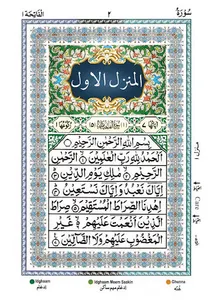 سُوْرَةُ ٢ اَلْفَاتِحَة ١
المنزل الاول
بِسْمِ اللهِ الرَّحْمٰنِ الرَّحِيْمِ
اَلْحَمْدُ لِلّٰهِ رَبِّ الْعٰلَمِيْنَ ۙ الرَّحْمٰنِ
الرَّحِيْمِ ۙ مٰلِكِ يَوْمِ الدِّيْنِ ؕ
اِيَّاكَ نَعْبُدُ وَاِيَّاكَ نَسْتَعِيْنُ ؕ
اِهْدِنَا الصِّرَاطَ الْمُسْتَقِيْمَ ۙ صِرَاطَ
الَّذِيْنَ اَنْعَمْتَ عَلَيْهِمْ ۙ غَيْرِ
الْمَغْضُوْبِ عَلَيْهِمْ وَلَا الضَّآلِّيْنَ
Idgham Idgham Meem Saakin Ghunna
ادغام ادغام میم ساکن غنّہ